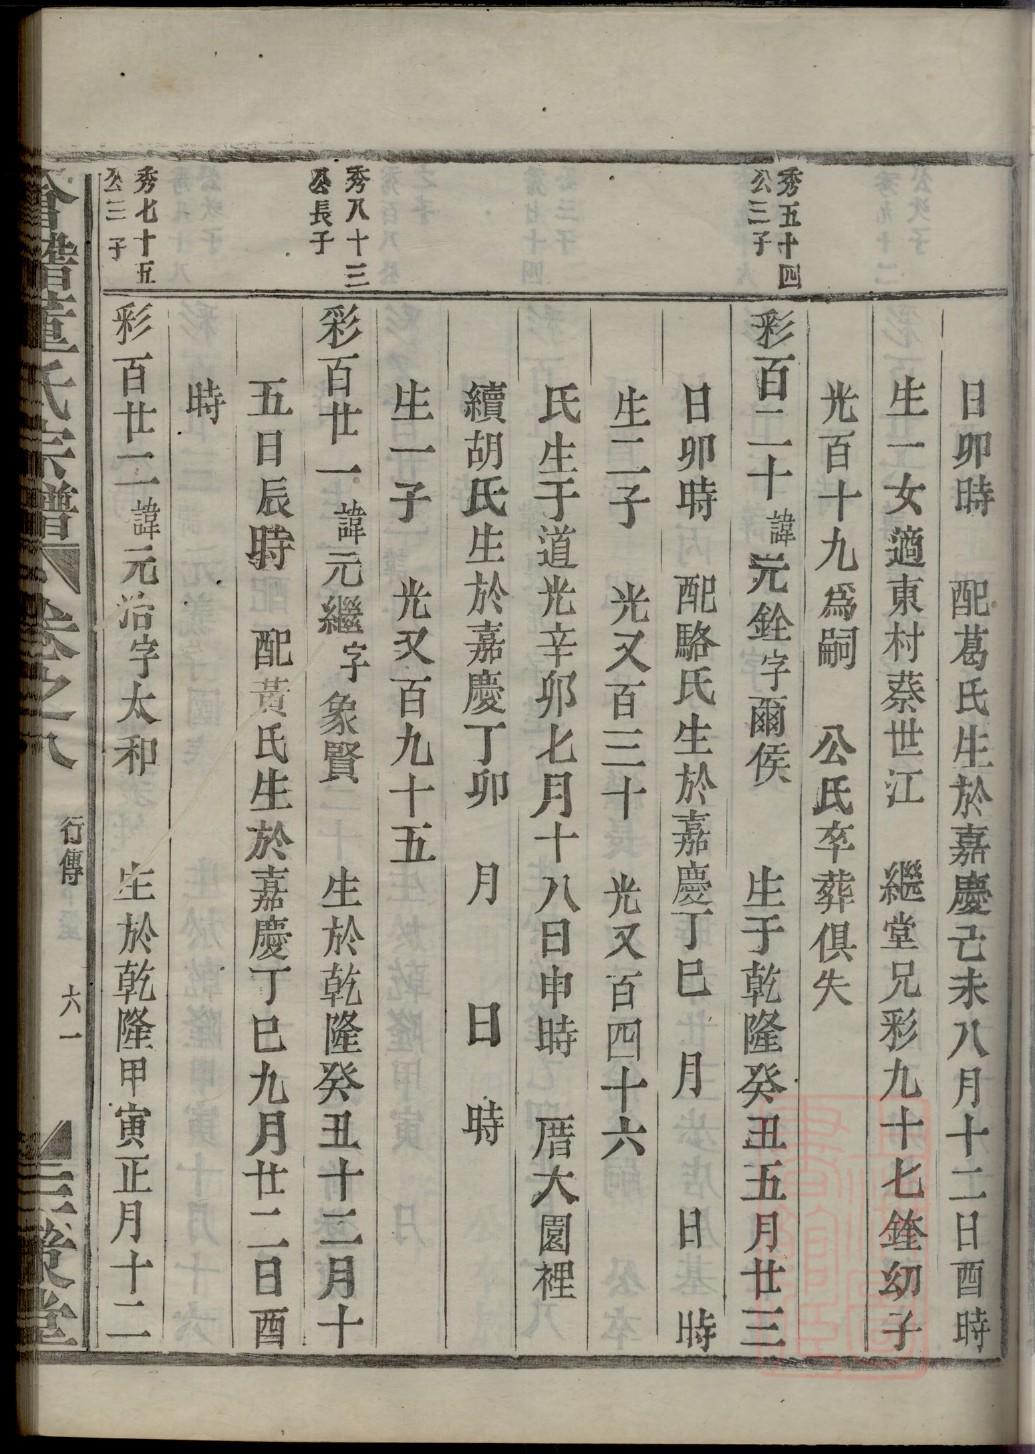 日卯時　配葛氏生於嘉慶己未八月十二日酉時
生一女適東村蔡世江　繼堂兄彩九十七銓幼子
光百十九爲嗣　公氏卒葬俱失
秀五十四
公三子
彩百二十諱元銓字爾侯　生于乾隆癸丑五月廿三
日卯時　配駱氏生於嘉慶丁巳　月　日　時
生二子　光又百三十　光又百四十六
氏生于道光辛卯七月十八日申時　厝大園裡
續胡氏生於嘉慶丁卯　月　日　時
生一子　光又百九十五
秀八十三
公長子
彩百廿一諱元繼字象賢　生於乾隆癸丑十二月十
五日辰時　配黃氏生於嘉慶丁巳九月廿二日酉
時
秀七十五
公三子
彩百廿二諱元治字太和　生於乾隆甲寅正月十二
董氏宗譜　卷之八　行傳　六一　三策堂